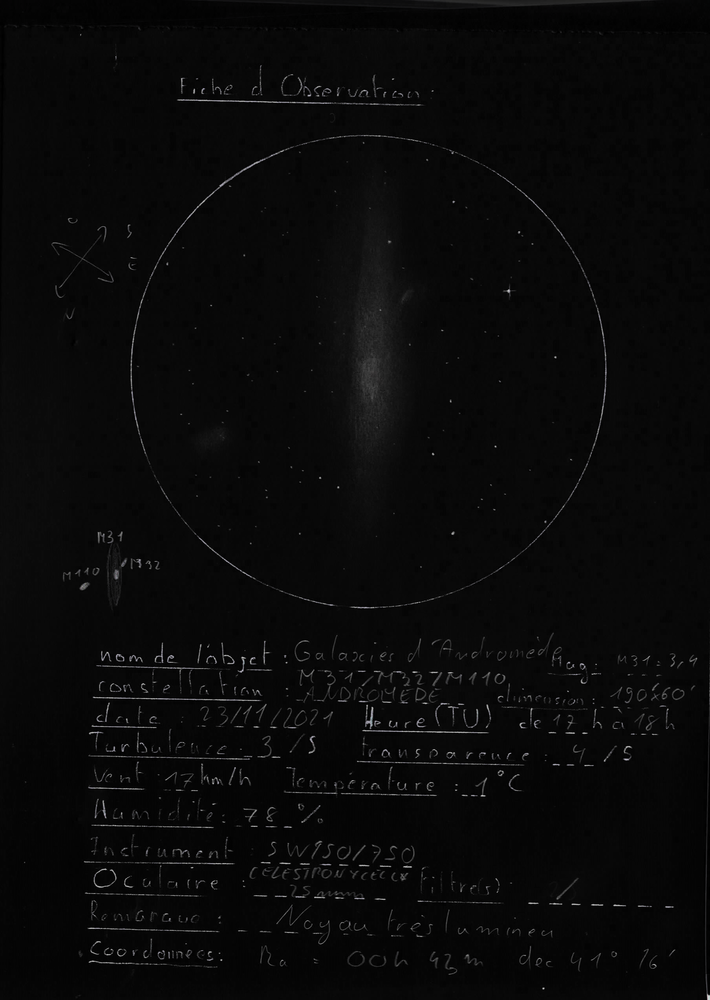 Fiche d'Observation:
O S
E
N
M31
M110 M32
nom de l'objet : Galaxies d'Andromède Mag: M31: 3,4
M31/M32/M110
constellation : ANDROMÈDE dimension: 190x60'
date : 23/11/2021 Heure (TU) de 17 h à 18 h
Turbulence: 3 /5 transparence : 4 /5
Vent : 17 km/h Température : 1°C
Humidité: 78 %
Instrument : SW150/750
Oculaire : CELESTRON Filtre(s): /
25mm
Remarque : Noyau très lumineu
Coordonnées: Ra = 00h 42m dec 41° 16'